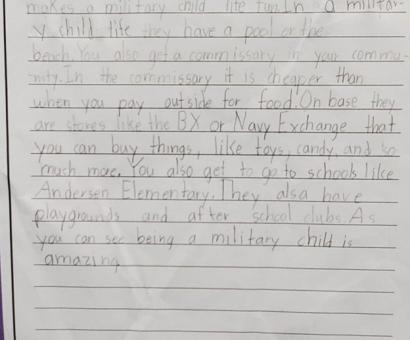 makes a military child life fun.In a militar-
y child life they have a pool or the
beach.You also get a commissary in your commu-
nity.In the commissary it is cheaper than
when you pay outside for food.On base they
are stores like the BX or Navy Exchange that
you can buy things, like toys, candy, and so
much more. You also get to go to schools like
Andersen Elementary. They also have
playgrounds and after school clubs. As
you can see being a military child is
amazing